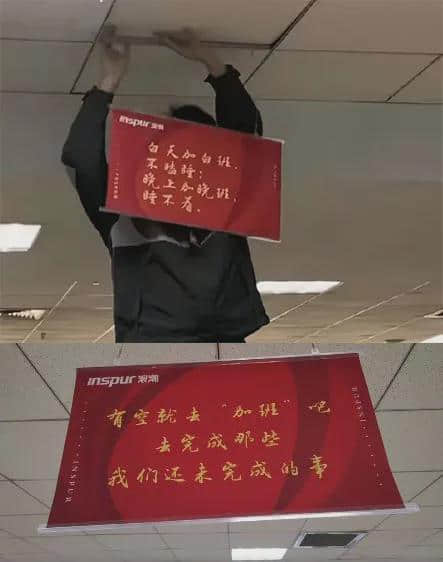 inspur 浪潮
白天加白班,
不瞌睡;
晚上加晚班,
睡不着.
inspur 浪潮
有空就去“加班”吧
去完成那些
我们还未完成的事
INSPUR